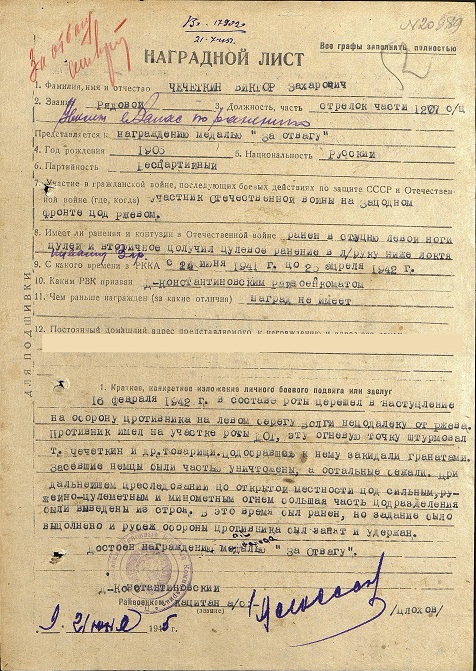 №20989
21-7-45г.
Все графы заполнять полностью
За отвагу
НАГРАДНОЙ ЛИСТ
1. Фамилия, имя и отчество ЧЕЧЕТКИН ВИКТОР Захарович
2. Звание рядовой 3. Должность, часть стрелок части 1207 с/п
запас по ранению
Представляется к награждению медалью "За отвагу"
4. Год рождения 1903 5. Национальность Русский
6. Партийность Беспартийный
7. Участие в гражданской войне, последующих боевых действиях по защите СССР и Отечествен-
ной войне (где, когда) участник Отечественной войны на Западном
фронте под Ржевом.
8. Имеет ли ранения и контузии в Отечественной войне ранен в ступню левой ноги
пулей и вторичное получил пулевое ранение в п/руку ниже локтя
9. С какого времени в РККА с 24 июня 1941 г. по 25 апреля 1942 г.
10. Каким РВК призван д-Константиновским райвоенкоматом
11. Чем раньше награжден (за какие отличия) наград не имеет
12. Постоянный домашний адрес представляемого к награждению
ДЛЯ ПОДШИВКИ
1. Краткое, конкретное изложение личного боевого подвига или заслуг
16 февраля 1942 г. в составе роты перешел в наступление
на оборону противника на левом берегу Волги неподалеку от Ржева.
Противник имел на участке роты ДОТ, эту огневую точку штурмовал
т. Чечеткин и др.товарищи.Подобравшись к нему закидали гранатами.
Засевшие немцы были частью уничтожены, а остальные бежали. При
дальнейшем преследовании по открытой местности под сильным ру-
жейно-пулеметным и минометным огнем большая часть подразделения
были выведены из строя. В это время был ранен, но задание было
выполнено и рубеж обороны противника был занят и удержан.
Достоен награждения медалью "За Отвагу".
д-Константиновский
Райвоенком, капитан а/с
(звание) /Плохов/
21 июня 1945г.